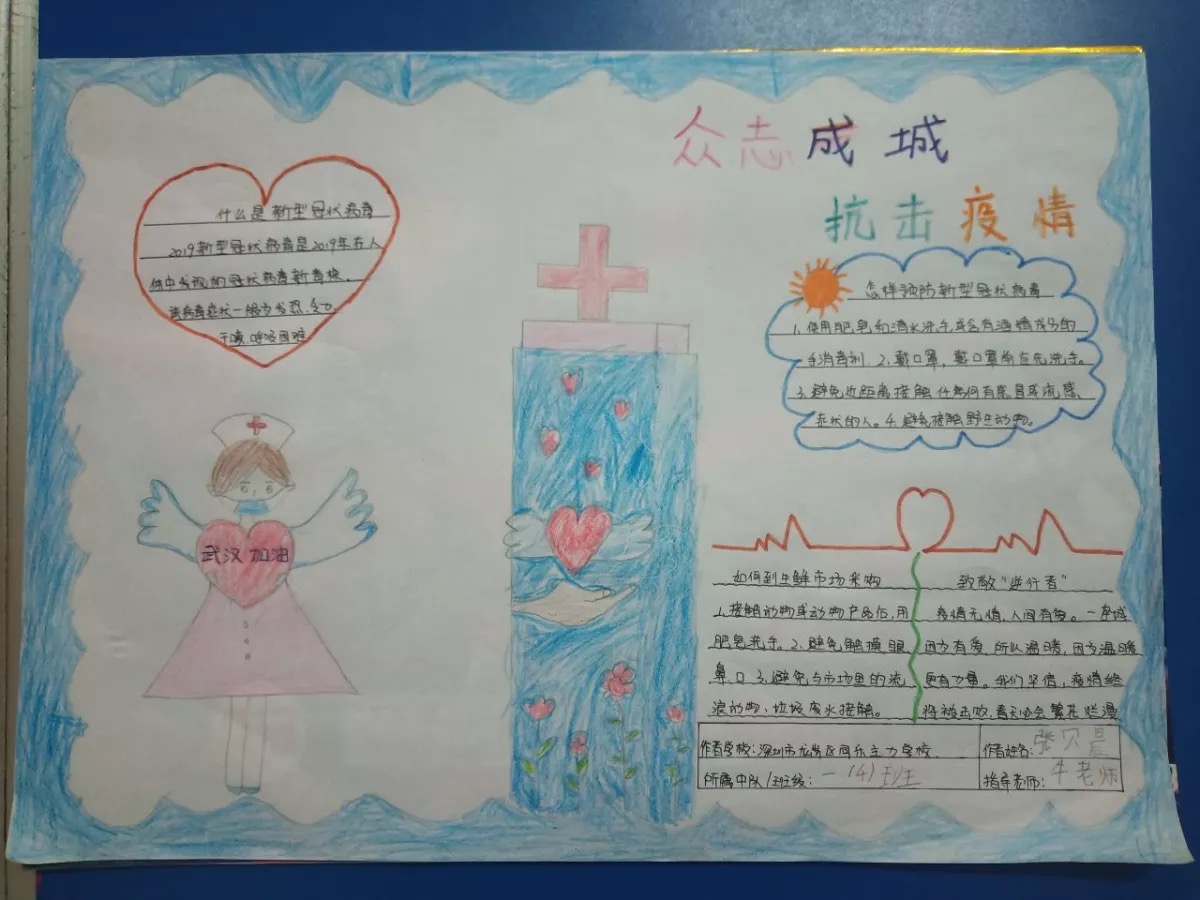 众志成城
抗击疫情
什么是新型冠状病毒
2019新型冠状病毒是2019年在人
体中发现的冠状病毒新毒株。
该病毒症状一般为发热、乏力、
干咳、呼吸困难
武汉加油
怎样预防新型冠状病毒
1、使用肥皂和清水洗手或含有酒精成分的
手消毒剂。2、戴口罩，戴口罩前应先洗手。
3、避免近距离接触任何有感冒或流感
症状的人。4、避免接触野生动物。
如何到生鲜市场采购
1、接触动物或动物产品后，用
肥皂洗手。2、避免触摸眼
鼻口3、避免与市场里的流
浪动物、垃圾废水接触。
致敬“逆行者”
疫情无情，人间有爱。一座城
因为有爱，所以温暖，因为温暖
更有力量。我们坚信，疫情终
将被击败，春天必会繁花烂漫
作者学校：深圳市龙岗区同乐主力学校
作者姓名：张贝晨
所属中队/班级：一（4）班
指导老师：牛老师